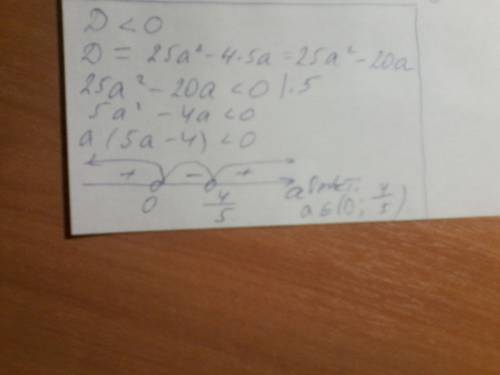 D < 0
D = 25a² - 4·5a = 25a² - 20a
25a² - 20a < 0 | :5
5a² - 4a < 0
a (5a - 4) < 0
+ - +
0 4/5 a Ответ:
a ∈ (0; 4/5)